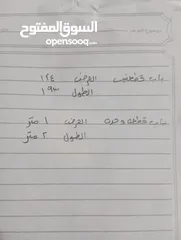 السوق المفتوح
opensooq.com
باب قطعتين العرض ١٢٤
الطول ١٩٣
باب قطعه وحده العرض ١ متر
الطول ٢ متر